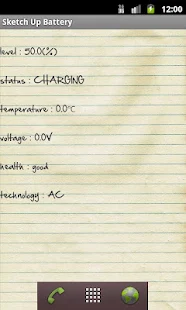 12:00
Sketch Up Battery
level : 50.0(%)
status : CHARGING
temperature : 0.0°C
voltage : 0.0V
health : good
technology : AC